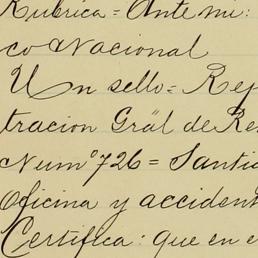 Rubrica = Ante mi:
co Nacional
Un sello = Rep
tracion Gral de Re
Num° 726 = Santi
Oficina y accident
Certifica: que en e